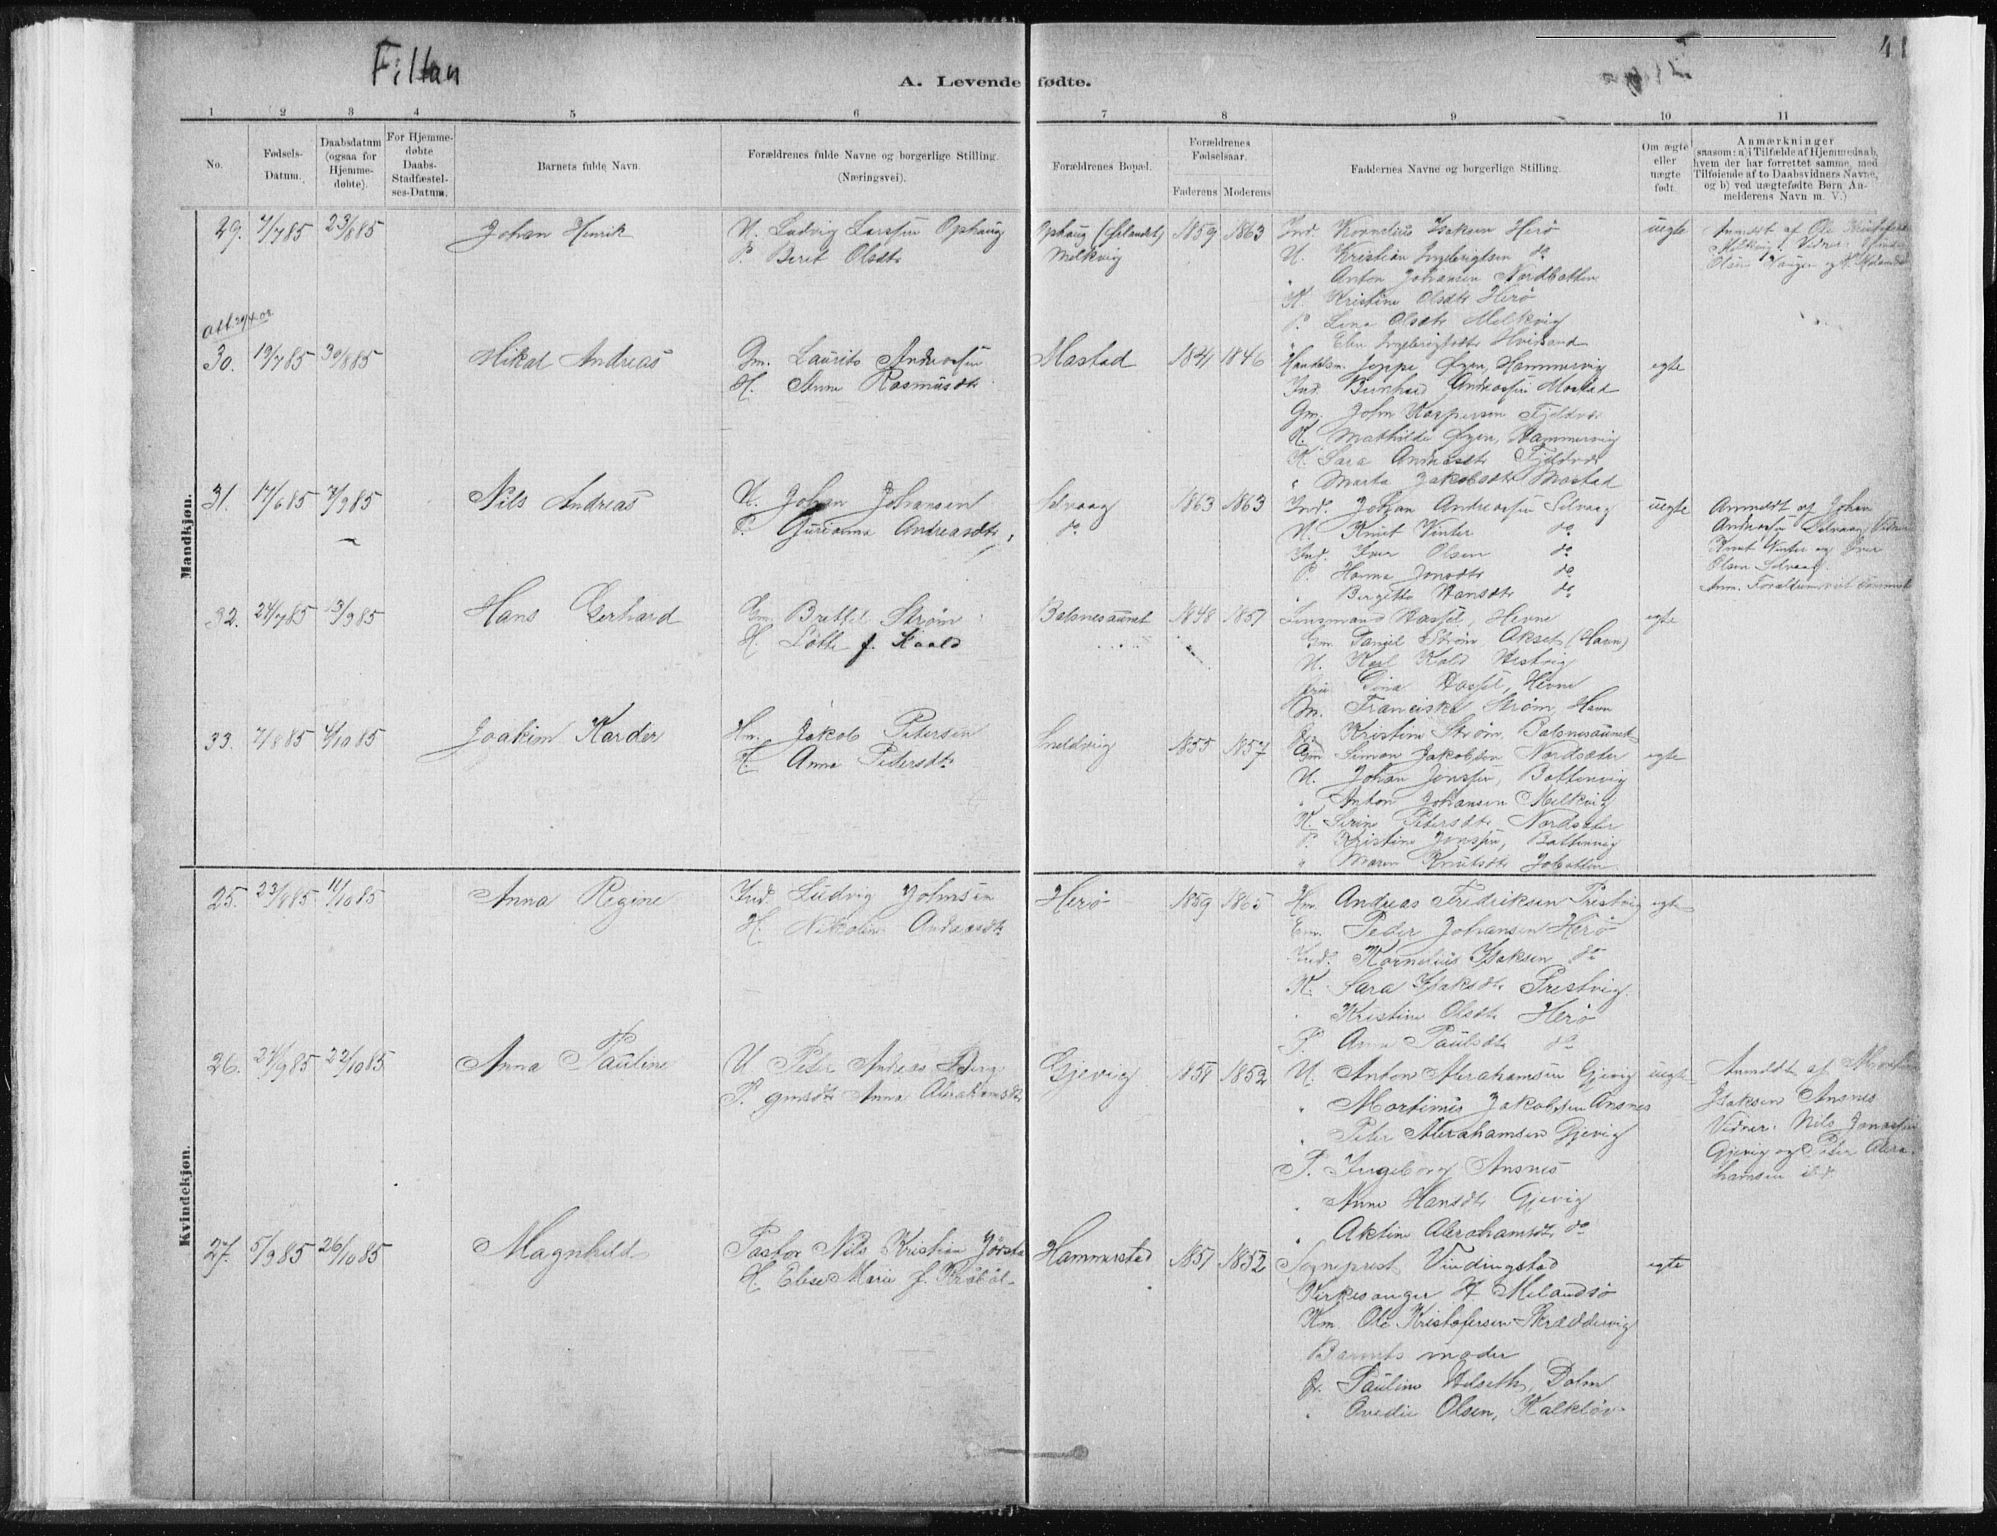 Fillan
41
A. Levende fødte.
1 2 3 4 5 6 7 8 9 10 11
No.
Fødsels-Datum.
Daabsdatum (ogsaa for Hjemmedøbte).
For Hjemmedøbte Daabs-Stadfæstelses-Datum.
Barnets fulde Navn.
Forældrenes fulde Navne og borgerlige Stilling. (Næringsvei).
Forældrenes Bopæl.
Forældrenes Fødselsaar.
Faderens Moderens
Faddernes Navne og borgerlige Stilling.
Om ægte eller uægte født.
Anmærkninger
saasom: a) i Tilfælde af Hjemmedaab,
hvem der har forrettet samme, med
Tilføiende af to Daabsvidners Navne,
og b) ved uægtefødte Børn Anmelderens Navn m. V.)
Mandkjøn.
29. 7/7 85 23/8 85 Johan Henrik
U. Ludvig Larssen Ophaug
P. Berit Olsdtr
Ophaug (Ørlandet)
Melkvig
1859 1863
Ind. Kornelius Isaksen Herø
U. Kristian Ingebrigtsen do
" Anton Johansen Nordbotten
K. Kristine Olsdtr Herø
P. Lina Olsdtr Melkvig
uegte
Anmeldt af Ole
30. 19/7 85 30/8 85 Mikal Andreas
Gm. Laurits Andreassen
H. Anne Rasmusdtr
Mastad
1841 1846
Handelsm. Jeppe Øyen, Hammervig
Ind. Bernhard Andreassen Mastad
Gm. John Kaspersen
K. Mathilde Øyen, Hammervig
K. Sara Andreasdtr
" Marta Jakobsdtr Mastad
egte
31. 17/6 85 7/9 85 Nils Andreas
U. Johan Johansen
P. Gurianna Andreasdtr
Selvaag
do
1863 1863
Ind. Johan Andreassen Selvaag
U. Knut Vinter do
Ind. Iver Olsen do
P. Hanna Jonsdtr do
" Bergitte Hansdtr do
uegte
Anmeldt af Johan
Andreassen Selvaag Vidner
Knut Vinter og Iver
Olsen Selvaag.
32. 24/7 85 13/9 85 Hans Gerhard
Gm. Strøm
H. Lotte f. Kaald
Balsnesaunet
1848 1851
Lensmand Hassel, Hevne
Gm. Daniel Strøm Akset (Havn)
U. Karl Kald Vestvig
Fru Gina Hassel, Hevne
M. Franciska Strøm, Havn
Kristine Strøm, Balsnesaunet
egte
33. 7/8 85 4/10 85 Joakim Karder
Hm. Jakob Petersen
H. Anna Petersdtr
1855 1857
Gm Simon Jakobsen Nordsæter
U. Johan Jonssen, Battenvig
" Anton Johansen Melkvig
K. Petersdtr Nordsæter
P. Kristine Jonssen, Battenvig
" Maren Knutsdtr
egte
Kvindekjøn.
25. 23/8 85 11/10 85 Anna Regine
Ind. Ludvig Johnsen
H. Nikoline Andreasdtr
Herø
1859 1865
Hm. Andreas Fredriksen Prestvig
Em. Peder Johansen Herø
Ind. Kornelius Isaksen do
K. Sara Isaksdtr Prestvig.
" Kristine Olsdtr Herø
P. Anna Paulsdtr do
egte
26. 24/9 85 22/10 85 Anna Pauline
U. Peter Andreas Berg
P. gmsdtr Anna Abrahamsdtr
Gjevig
1858 1852
U. Anton Abrahamsen Gjevig
" Mortinus Jakobsen Ansnes
" Peter Abrahamsen Gjevig
P. Ingeborg Ansnes
" Anne Hansdtr Gjevig
" Aktine Abrahamsdtr do
uegte
Anmeldt af
Isaksen Ansnes
Vidner: Nils
Gjevig og Peter Abra-
hamsen
27. 5/9 85 26/10 85 Magnhild
Pastor Nils Kristian
H. Elise Marie f.
Hammerstad
1851 1852
Sogneprest Vindingstad
Kirkesanger H Melandsø
Km. Ole Kristofersen Skræddervig
Barnets moder
Fr. Pauline Helseth, Dolm
" Olsen, Kalkløv
egte